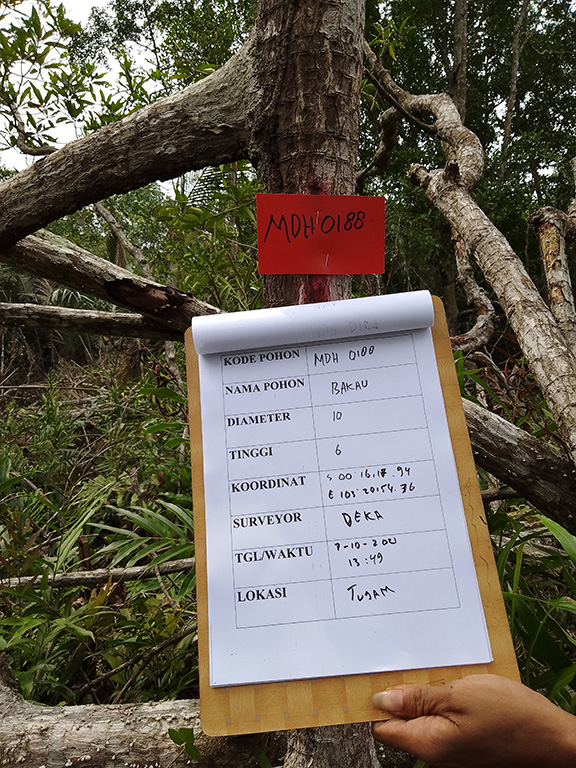 MDH 0188
KODE POHON MDH 0188
NAMA POHON BAKAU
DIAMETER 10
TINGGI 6
KOORDINAT S 00 16.17.94
E 103 20154.76
SURVEYOR DEKA
TGL/WAKTU 7-10-2021
13:49
LOKASI